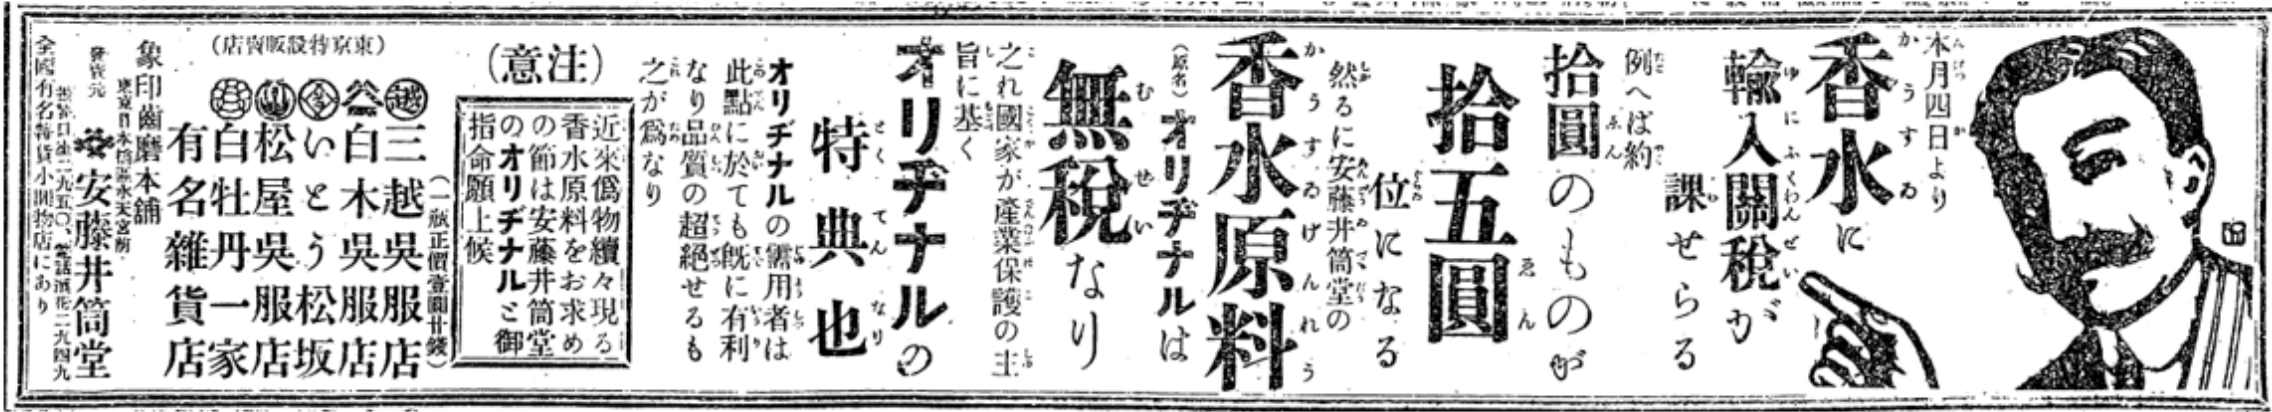 本月四日より
香水に
輸入關稅が
課せらる
例へば約
拾圓のものが
拾五圓
位になる
然るに安藤井筒堂の
香水原料
(原名)オリヂナルは
無稅なり
之れ國家が產業保護の主
旨に基く
オリヂナルの
特典也
オリヂナルの需用者は
此點に於ても既に有利
なり品質の超絕せるも
之が爲なり
(注意)
近來僞物續々現る
香水原料をお求め
の節は安藤井筒堂
のオリヂナルと御
指命願上候
(一瓶正價壹圓廿錢)
(東京特設販賣店)
越三越吳服店
白木吳服店
いとう松坂
松屋吳服店
白牡丹一家
有名雜貨店
象印齒磨本舖
東京日本橋區水天宮前
發賣元 安藤井筒堂
全國有名特貨小間物店にあり